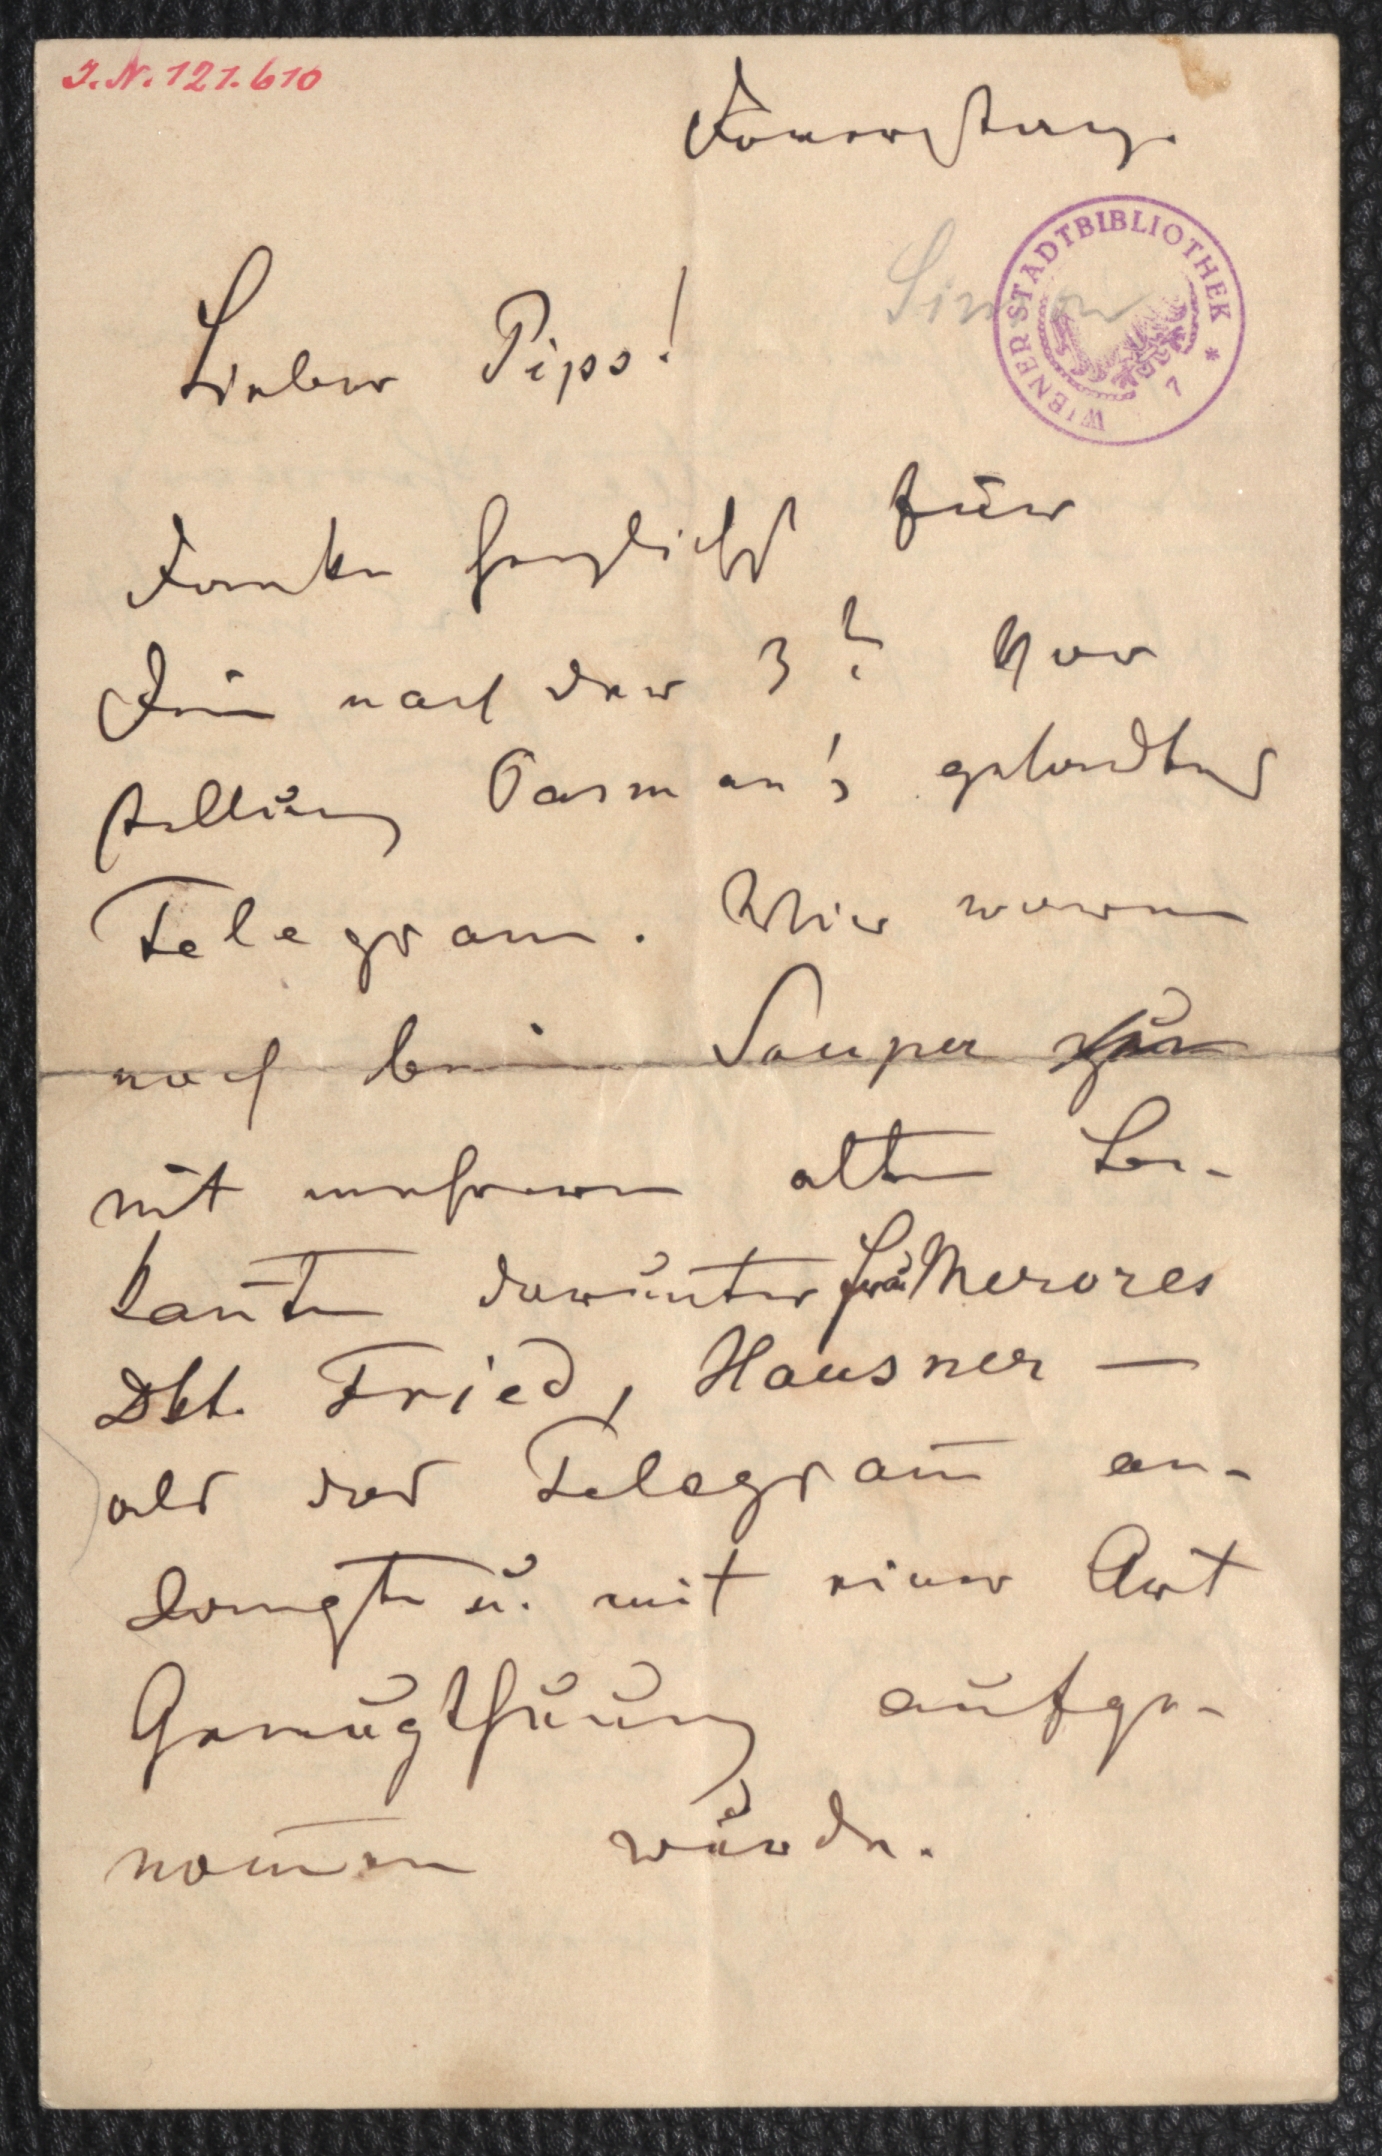 I.N. 121.610
Donnerstag.
Simon
WIENER STADTBIBLIOTHEK * 7
Lieber Pips!
Danke herzlichst für
Dein nach der 3t. Vor
stellung Pasman's gesandtes
Telegram. Wir waren
noch beim Souper
mit mehreren alten Be-
kannten darunter Frau Merores
Dkt. Fried, Hausner —
als das Telegram̅ an-
langte u. mit einer Art
Genugthuung aufge-
nom̅en wurde.